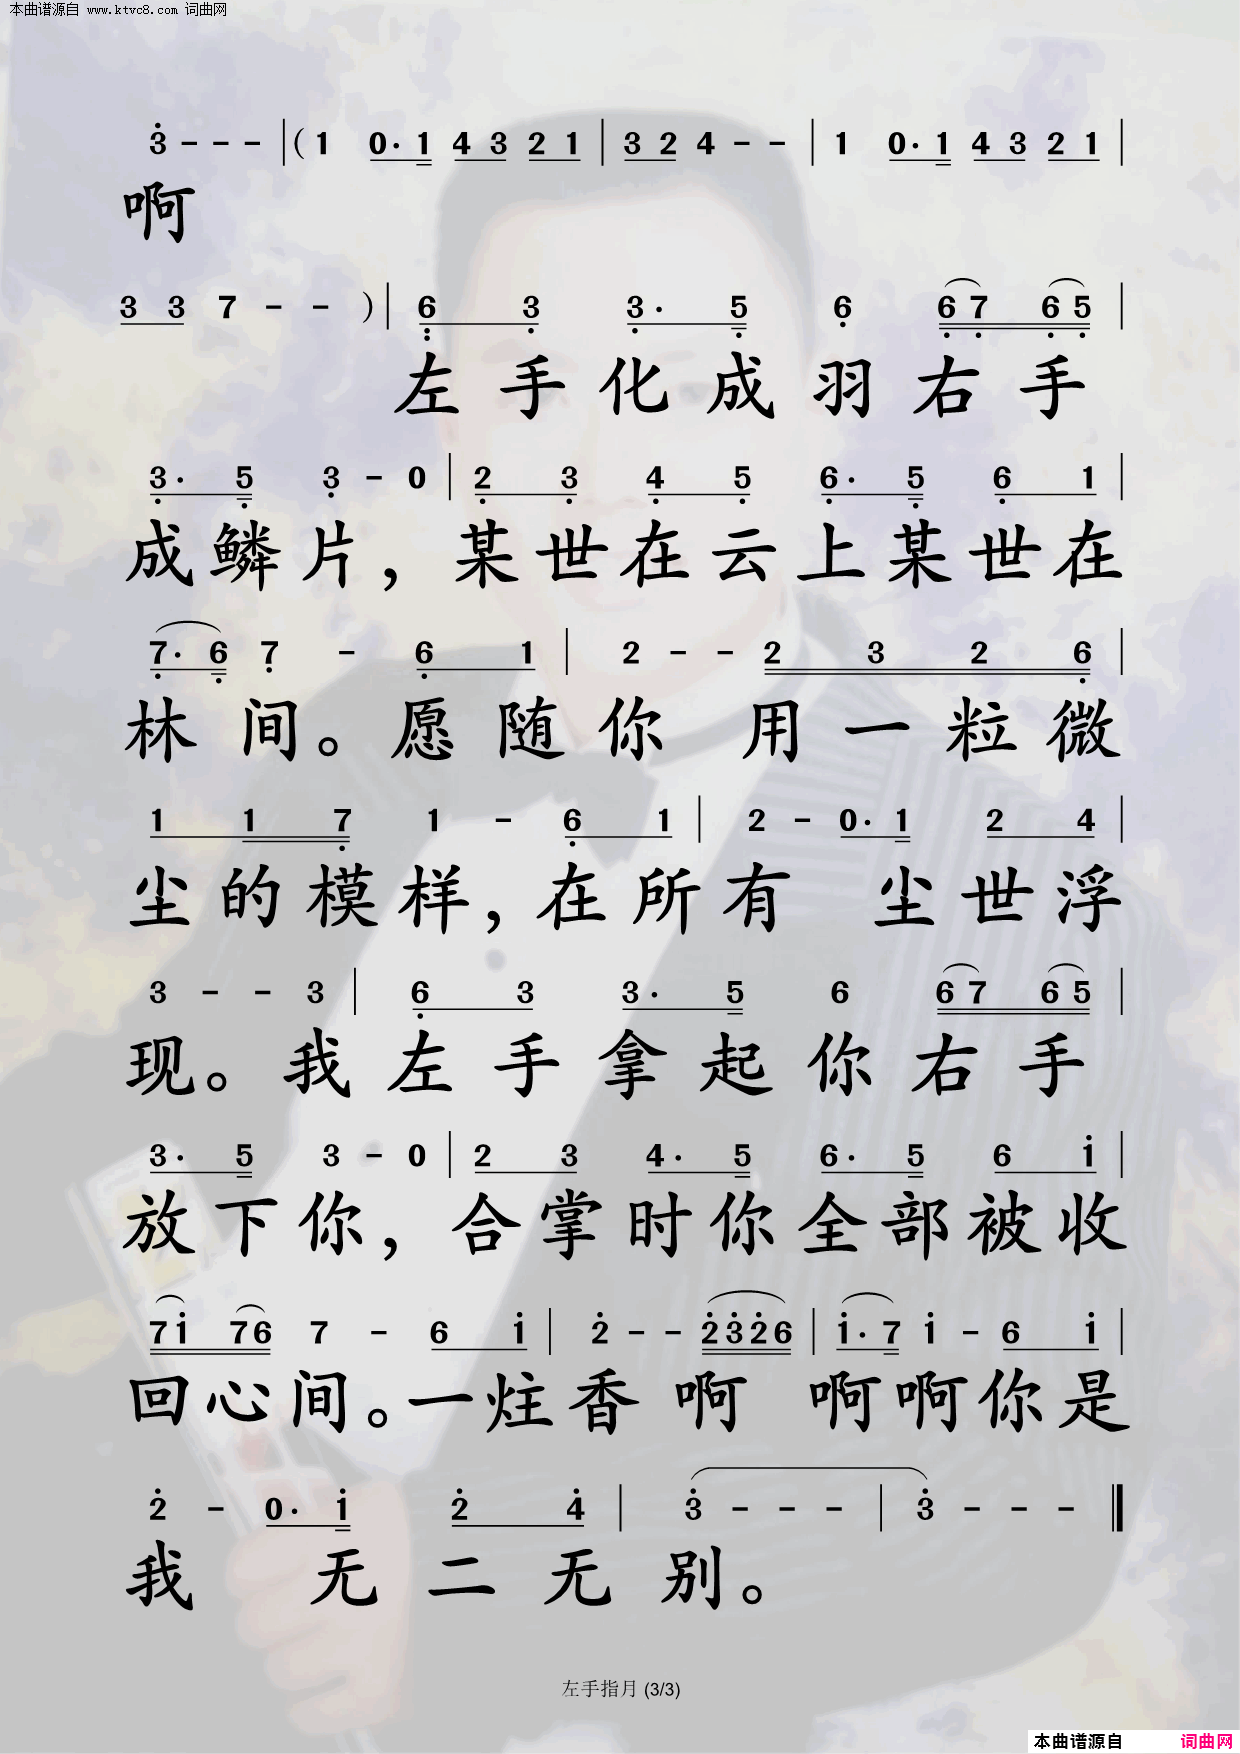 本曲谱源自 www.ktvc8.com 词曲网
3 - - - | ( 1 0 · 1 4 3 2 1 | 3 2 4 - - | 1 0 · 1 4 3 2 1 |
啊
3 3 7 - - ) | 6 3 3 · 5 6 6 7 6 5 |
左手化成羽右手
3 · 5 3 - 0 | 2 3 4 5 6 · 5 6 1 |
成鳞片，某世在云上某世在
7 · 6 7 - 6 1 | 2 - - 2 3 2 6 |
林间。愿随你 用一粒微
1 1 7 1 - 6 1 | 2 - 0 · 1 2 4 |
尘的模样，在所有 尘世浮
3 - - 3 | 6 3 3 · 5 6 6 7 6 5 |
现。我左手拿起你右手
3 · 5 3 - 0 | 2 3 4 · 5 6 · 5 6 1 |
放下你，合掌时你全部被收
7 1 7 6 7 - 6 1 | 2 - - 2 3 2 6 | 1 · 7 1 - 6 1 |
回心间。一炷香啊 啊啊你是
2 - 0 · 1 2 4 | 3 - - - | 3 - - - ‖
我 无二无别。
左手指月 (3/3)
本曲谱源自 词曲网